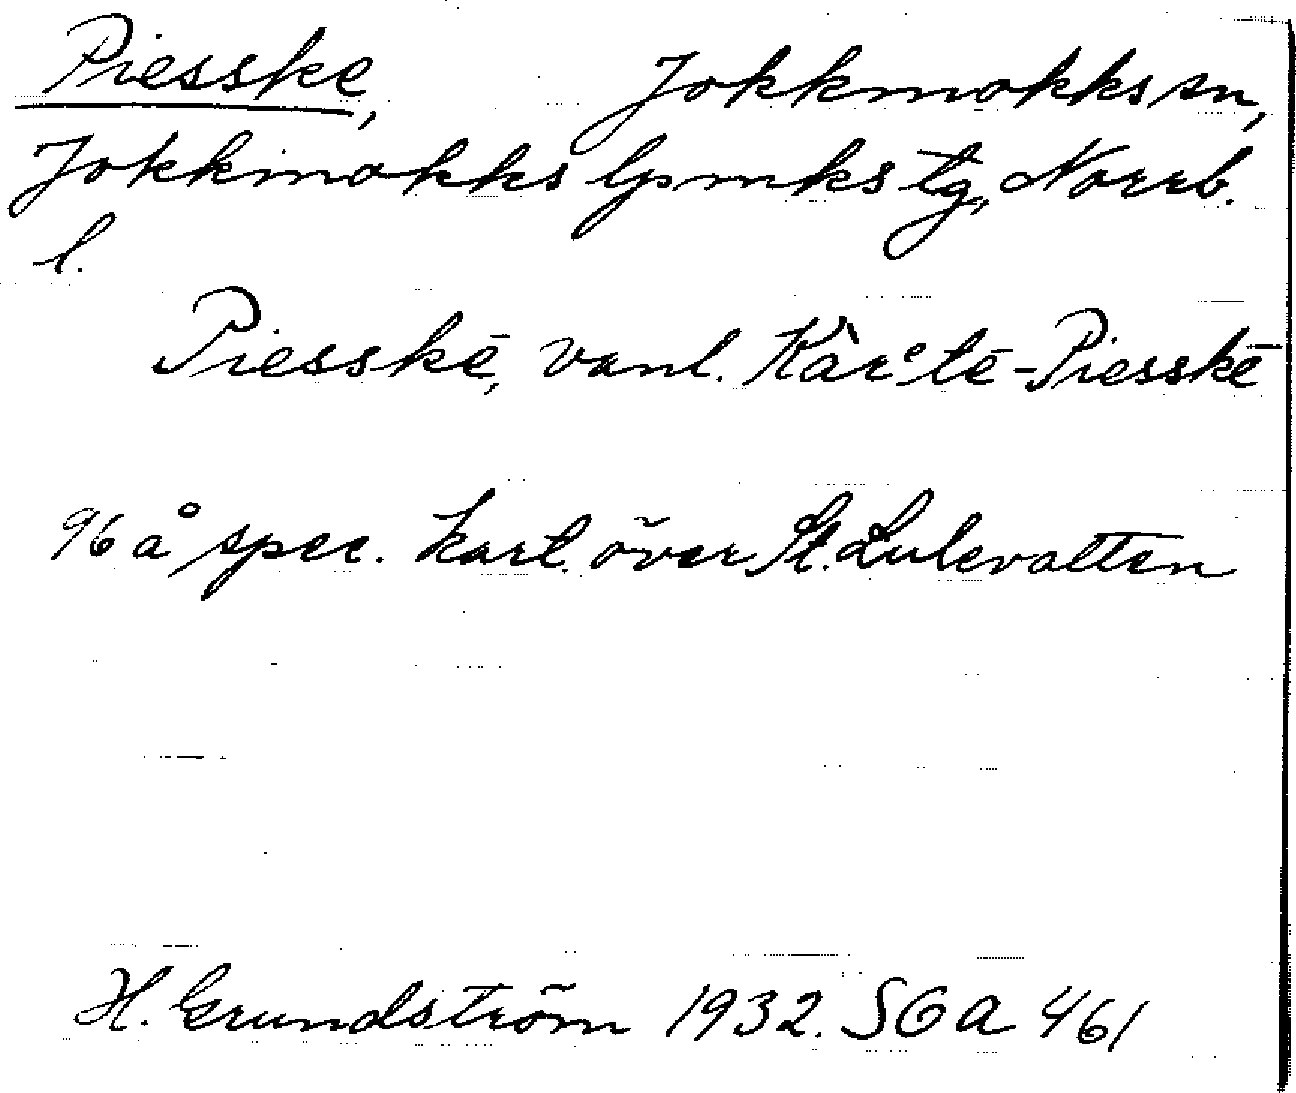 Piesske, Jokkmokks sn,
Jokkmokks lpmks tg, Norrb.
l.
Piesskē, vanl. Kàrᵉtē-Piesskē
96 å spec. kart. över St. Lulevatten
H. Grundström 1932. SOA 461